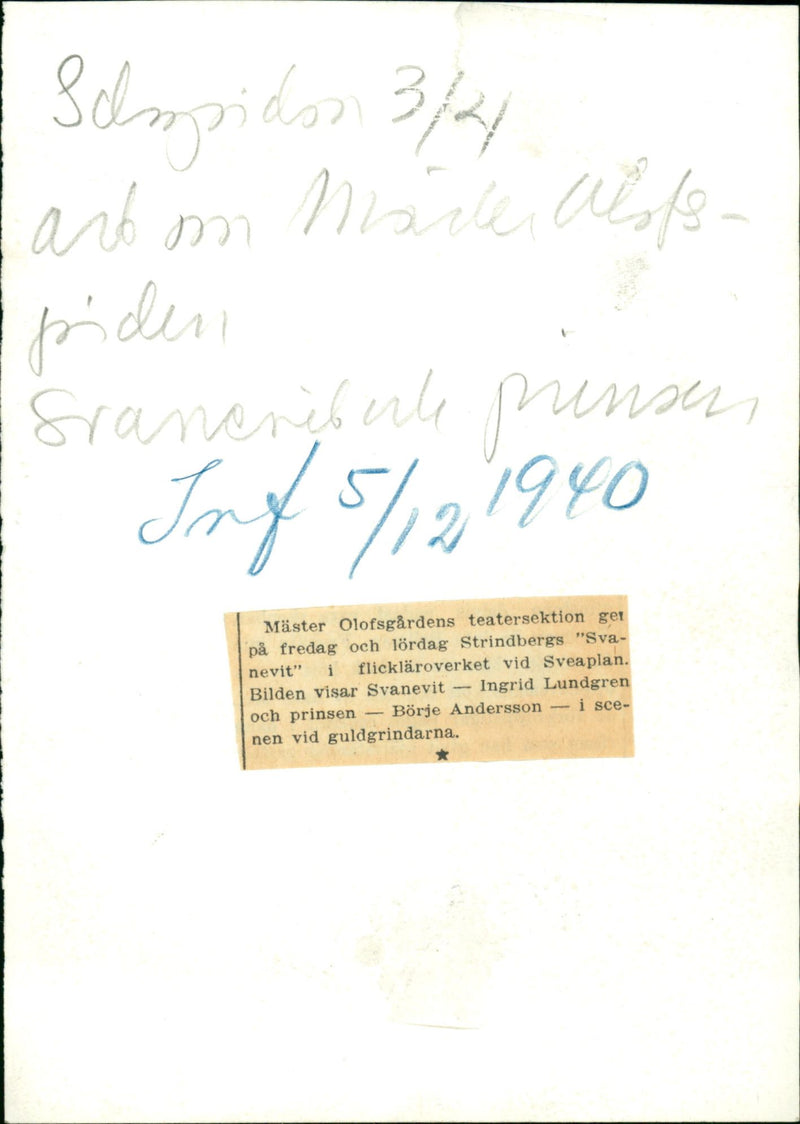 3/4
art om Mäster Olofs-
gården
Svanevit och prinsen
Inf 5/12 1940
Mäster Olofsgårdens teatersektion ger
på fredag och lördag Strindbergs "Sva-
nevit" i flickläroverket vid Sveaplan.
Bilden visar Svanevit — Ingrid Lundgren
och prinsen — Börje Andersson — i sce-
nen vid guldgrindarna.